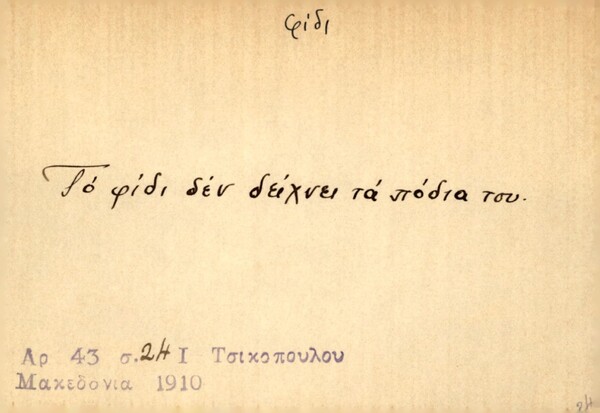 φίδι
Τό φίδι δέν δείχνει τά πόδια του.
Αρ 43 σ.24 Ι Τσικοπουλου
Μακεδονια 1910
24